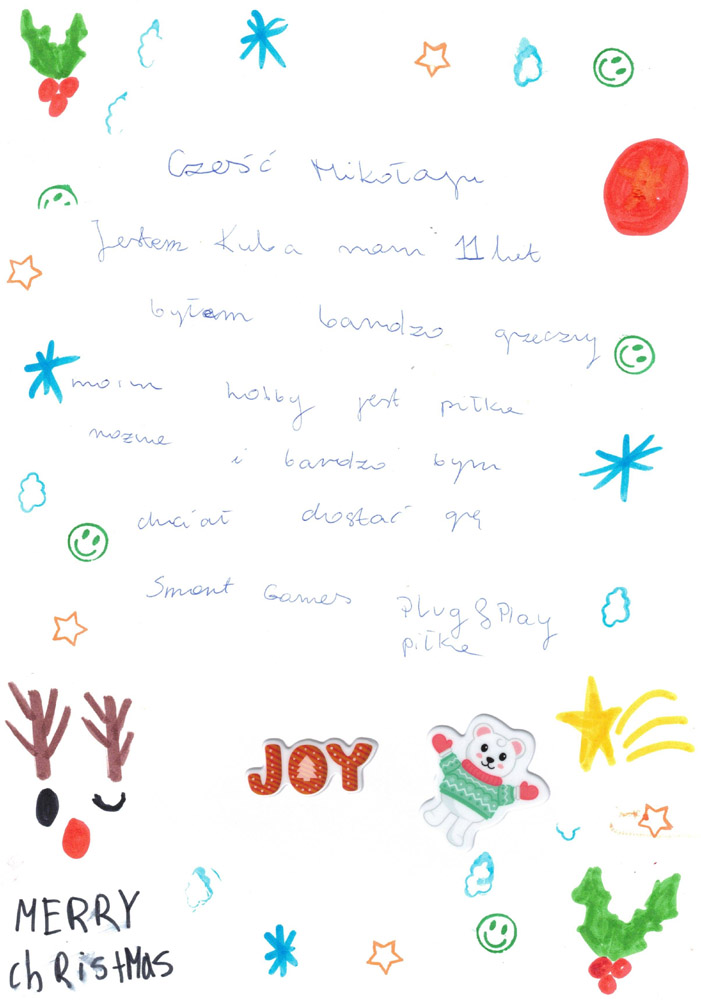 Cześć Mikołaju
Jestem Kuba mam 11 lat
byłem bardzo grzeczny
moim hobby jest piłka
nożna i bardzo bym
chciał dostać grę
Smart Games Plug & Play
piłka
JOY
MERRY
chRistMas